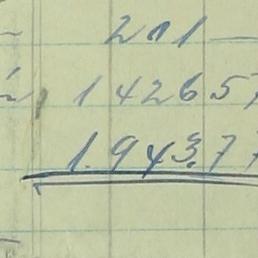 211 —
1 42657
1.943.77